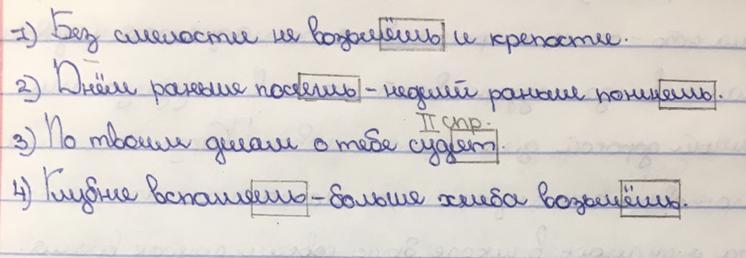 1) Без смелости не возьмёшь и крепости.
2) Днём раньше посеешь – неделей раньше пожнешь.
II спр.
3) По твоим делам о тебе судят.
4) Глубже вспашешь – больше хлеба возьмёшь.